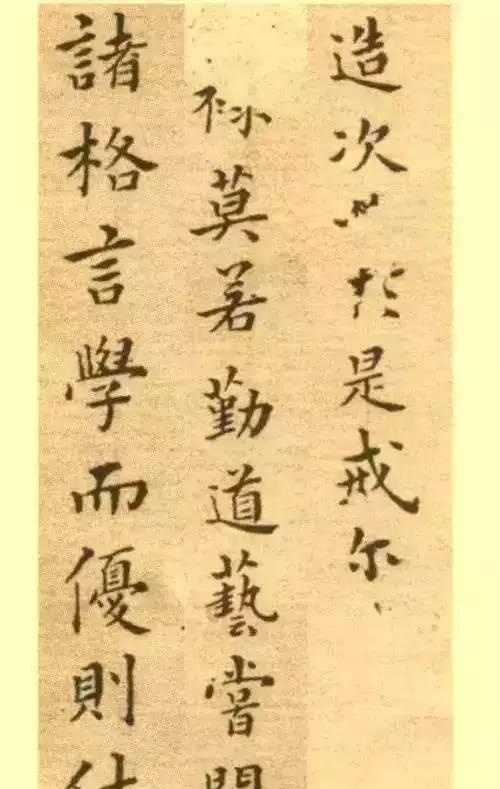 造次必於是戒尔
莫若勤道藝嘗
諸格言學而優則